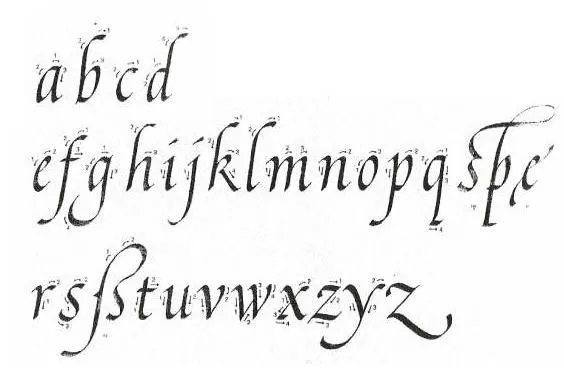 abcd
efghijklmnopq spe
rsßtuvwxzyz